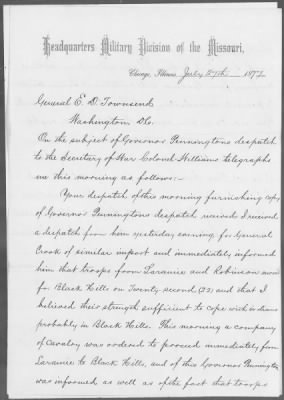 Headquarters Military Division of the Missouri.
Chicago, Illinois, July 27th 1877
General E. D. Townsend
Washington, D.C.
On the subject of Governor Penningtons despatch
to the Secretary of War Colonel Williams telegraphs
me this morning as follows:-
Your despatch of this morning furnishing copy
of Governor Penningtons despatch received I received
a despatch from him yesterday evening for General
Crook of similar import and immediately informed
him that troops from Laramie and Robinson
for Black Hills on Twenty second (22) and that I
believed their strength sufficient to cope with indians
probably in Black Hills. This morning a company
of Cavalry was ordered to proceed immediately from
Laramie to Black Hills, and of this Governor Pennington
was informed as well as of the fact that troops